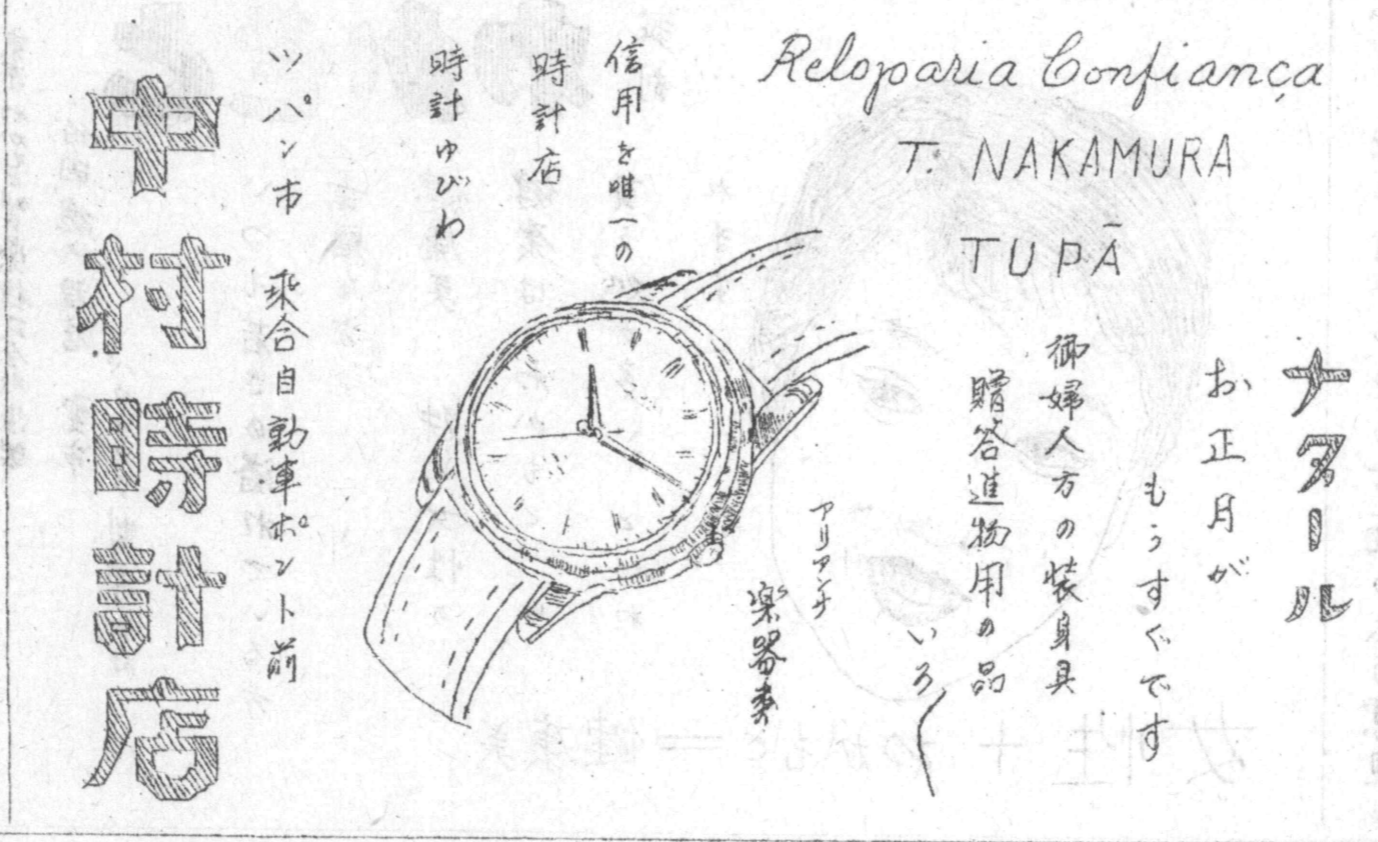 Relojoaria Confiança
T. NAKAMURA
TUPÃ
ナタール
お正月が
もうすぐです
御婦人方の装身具
贈答進物用の品
いろ〱
アリアンサ
楽器責
信用を唯一の
時計店
時計ゆびわ
ツパン市 乗合自動車ポント前
中村時計店